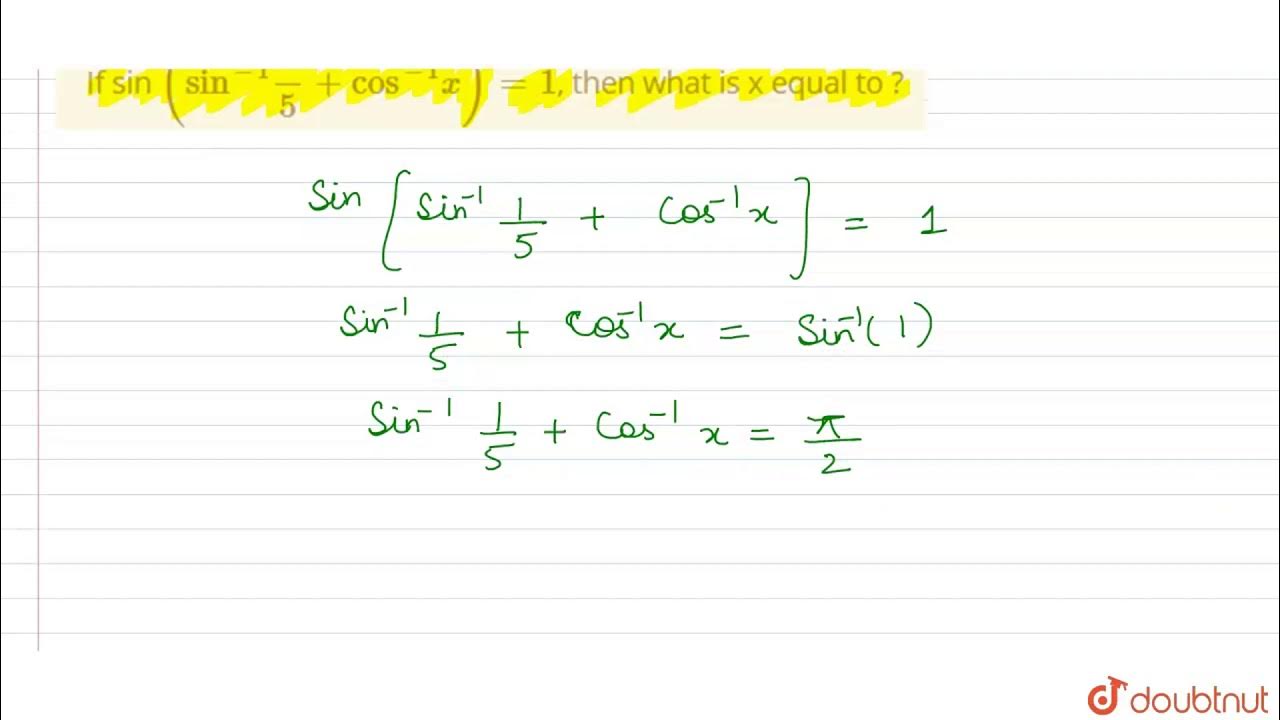 If sin (sin⁻¹ 1/5 + cos⁻¹x) = 1, then what is x equal to ?
Sin [Sin⁻¹ 1/5 + Cos⁻¹x] = 1
Sin⁻¹ 1/5 + Cos⁻¹x = Sin⁻¹(1)
Sin⁻¹ 1/5 + Cos⁻¹ x = π/2
doubtnut